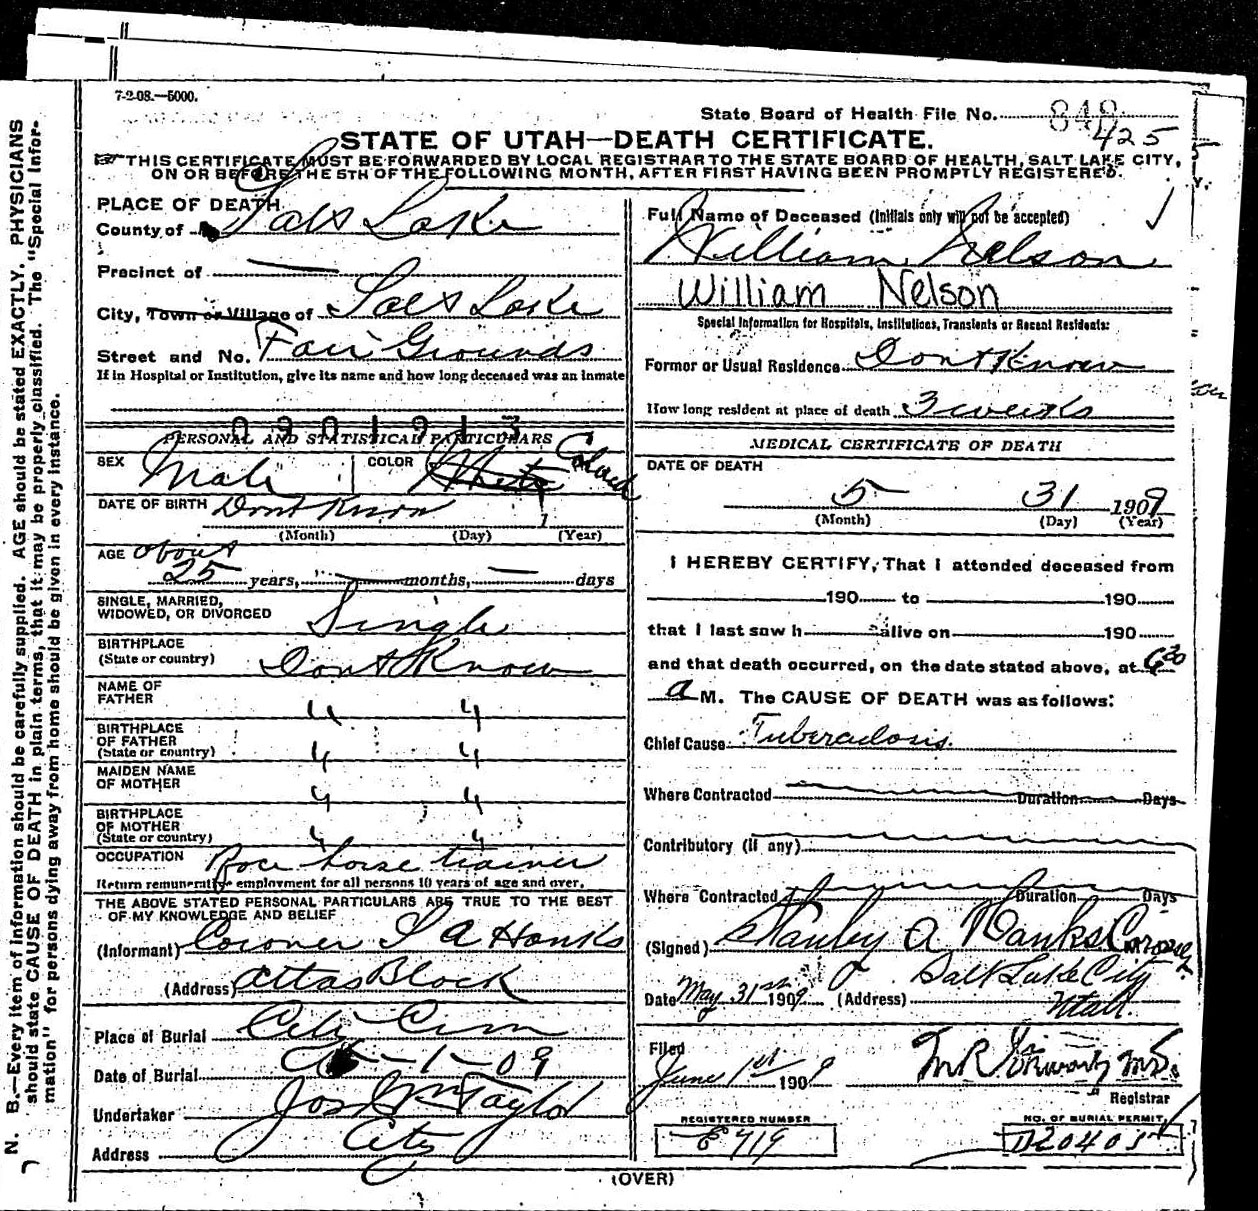 7-2-08.—5000.
State Board of Health File No. 848
425
STATE OF UTAH—DEATH CERTIFICATE.
THIS CERTIFICATE MUST BE FORWARDED BY LOCAL REGISTRAR TO THE STATE BOARD OF HEALTH, SALT LAKE CITY,
ON OR BEFORE THE 5TH OF THE FOLLOWING MONTH, AFTER FIRST HAVING BEEN PROMPTLY REGISTERED.
PLACE OF DEATH
County of Salt Lake
Precinct of —
City, Town or Village of Salt Lake
Street and No. Fair Grounds
If in Hospital or Institution, give its name and how long deceased was an inmate
0901913
PERSONAL AND STATISTICAL PARTICULARS
SEX Male COLOR White Colored
DATE OF BIRTH Dont Know 1
(Month) (Day) (Year)
AGE about
25 years, — months, — days
SINGLE, MARRIED,
WIDOWED, OR DIVORCED Single
BIRTHPLACE
(State or country) Dont Know
NAME OF
FATHER " "
BIRTHPLACE
OF FATHER
(State or country) " "
MAIDEN NAME
OF MOTHER " "
BIRTHPLACE
OF MOTHER
(State or country) " "
OCCUPATION Race horse trainer
Return remunerative employment for all persons 10 years of age and over.
THE ABOVE STATED PERSONAL PARTICULARS ARE TRUE TO THE BEST
OF MY KNOWLEDGE AND BELIEF
(Informant) Coroner S A Hanks
(Address) Atlas Block
Place of Burial City Cem
Date of Burial 6-1-09
Undertaker Jos Wm Taylor
Address City
Full Name of Deceased (Initials only will not be accepted)
William Nelson
William Nelson
Special Information for Hospitals, Institutions, Transients or Recent Residents:
Former or Usual Residence Dont Know
How long resident at place of death 3 weeks
MEDICAL CERTIFICATE OF DEATH
DATE OF DEATH
5 31 1909
(Month) (Day) (Year)
I HEREBY CERTIFY, That I attended deceased from
190 to 190
that I last saw h alive on 190
and that death occurred, on the date stated above, at 6 30
a M. The CAUSE OF DEATH was as follows:
Chief Cause Tuberculosis.
Where Contracted Duration Days
Contributory (if any)
Where Contracted Duration Days
(Signed) Stanley A Hanks Coroner
Date May 31st 1909 (Address) Salt Lake City
Utah.
Filed
June 1st 1909 M R
Registrar
REGISTERED NUMBER
E 919
NO. OF BURIAL PERMIT
D20405
(OVER)
N. B.—Every item of information should be carefully supplied. AGE should be stated EXACTLY. PHYSICIANS
should state CAUSE OF DEATH in plain terms, that it may be properly classified. The "Special Infor-
mation" for persons dying away from home should be given in every instance.